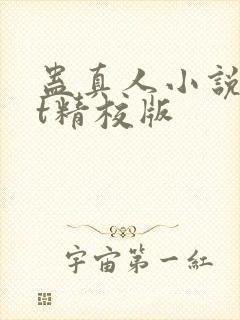 蛊真人小説
t精校版
宇宙第一紅